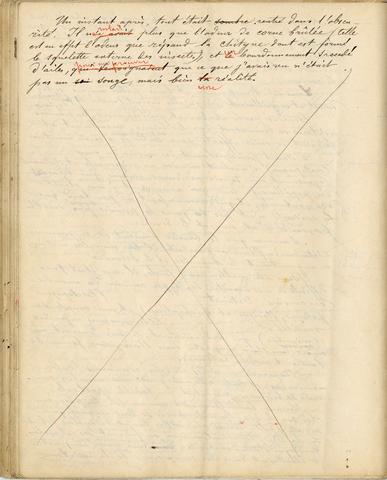 Un instant après, tout était rentré dans l'obscu
rité. Il n' restait plus que l'odeur de corne brûlée (telle
est en effet l'odeur que répand la chityne dont est formé
le squelette externe des insectes), et un bourdonnement
d'aile, pour me prouver que ce que j'avais vu n'était
pas un songe, mais bien la réalité.
une